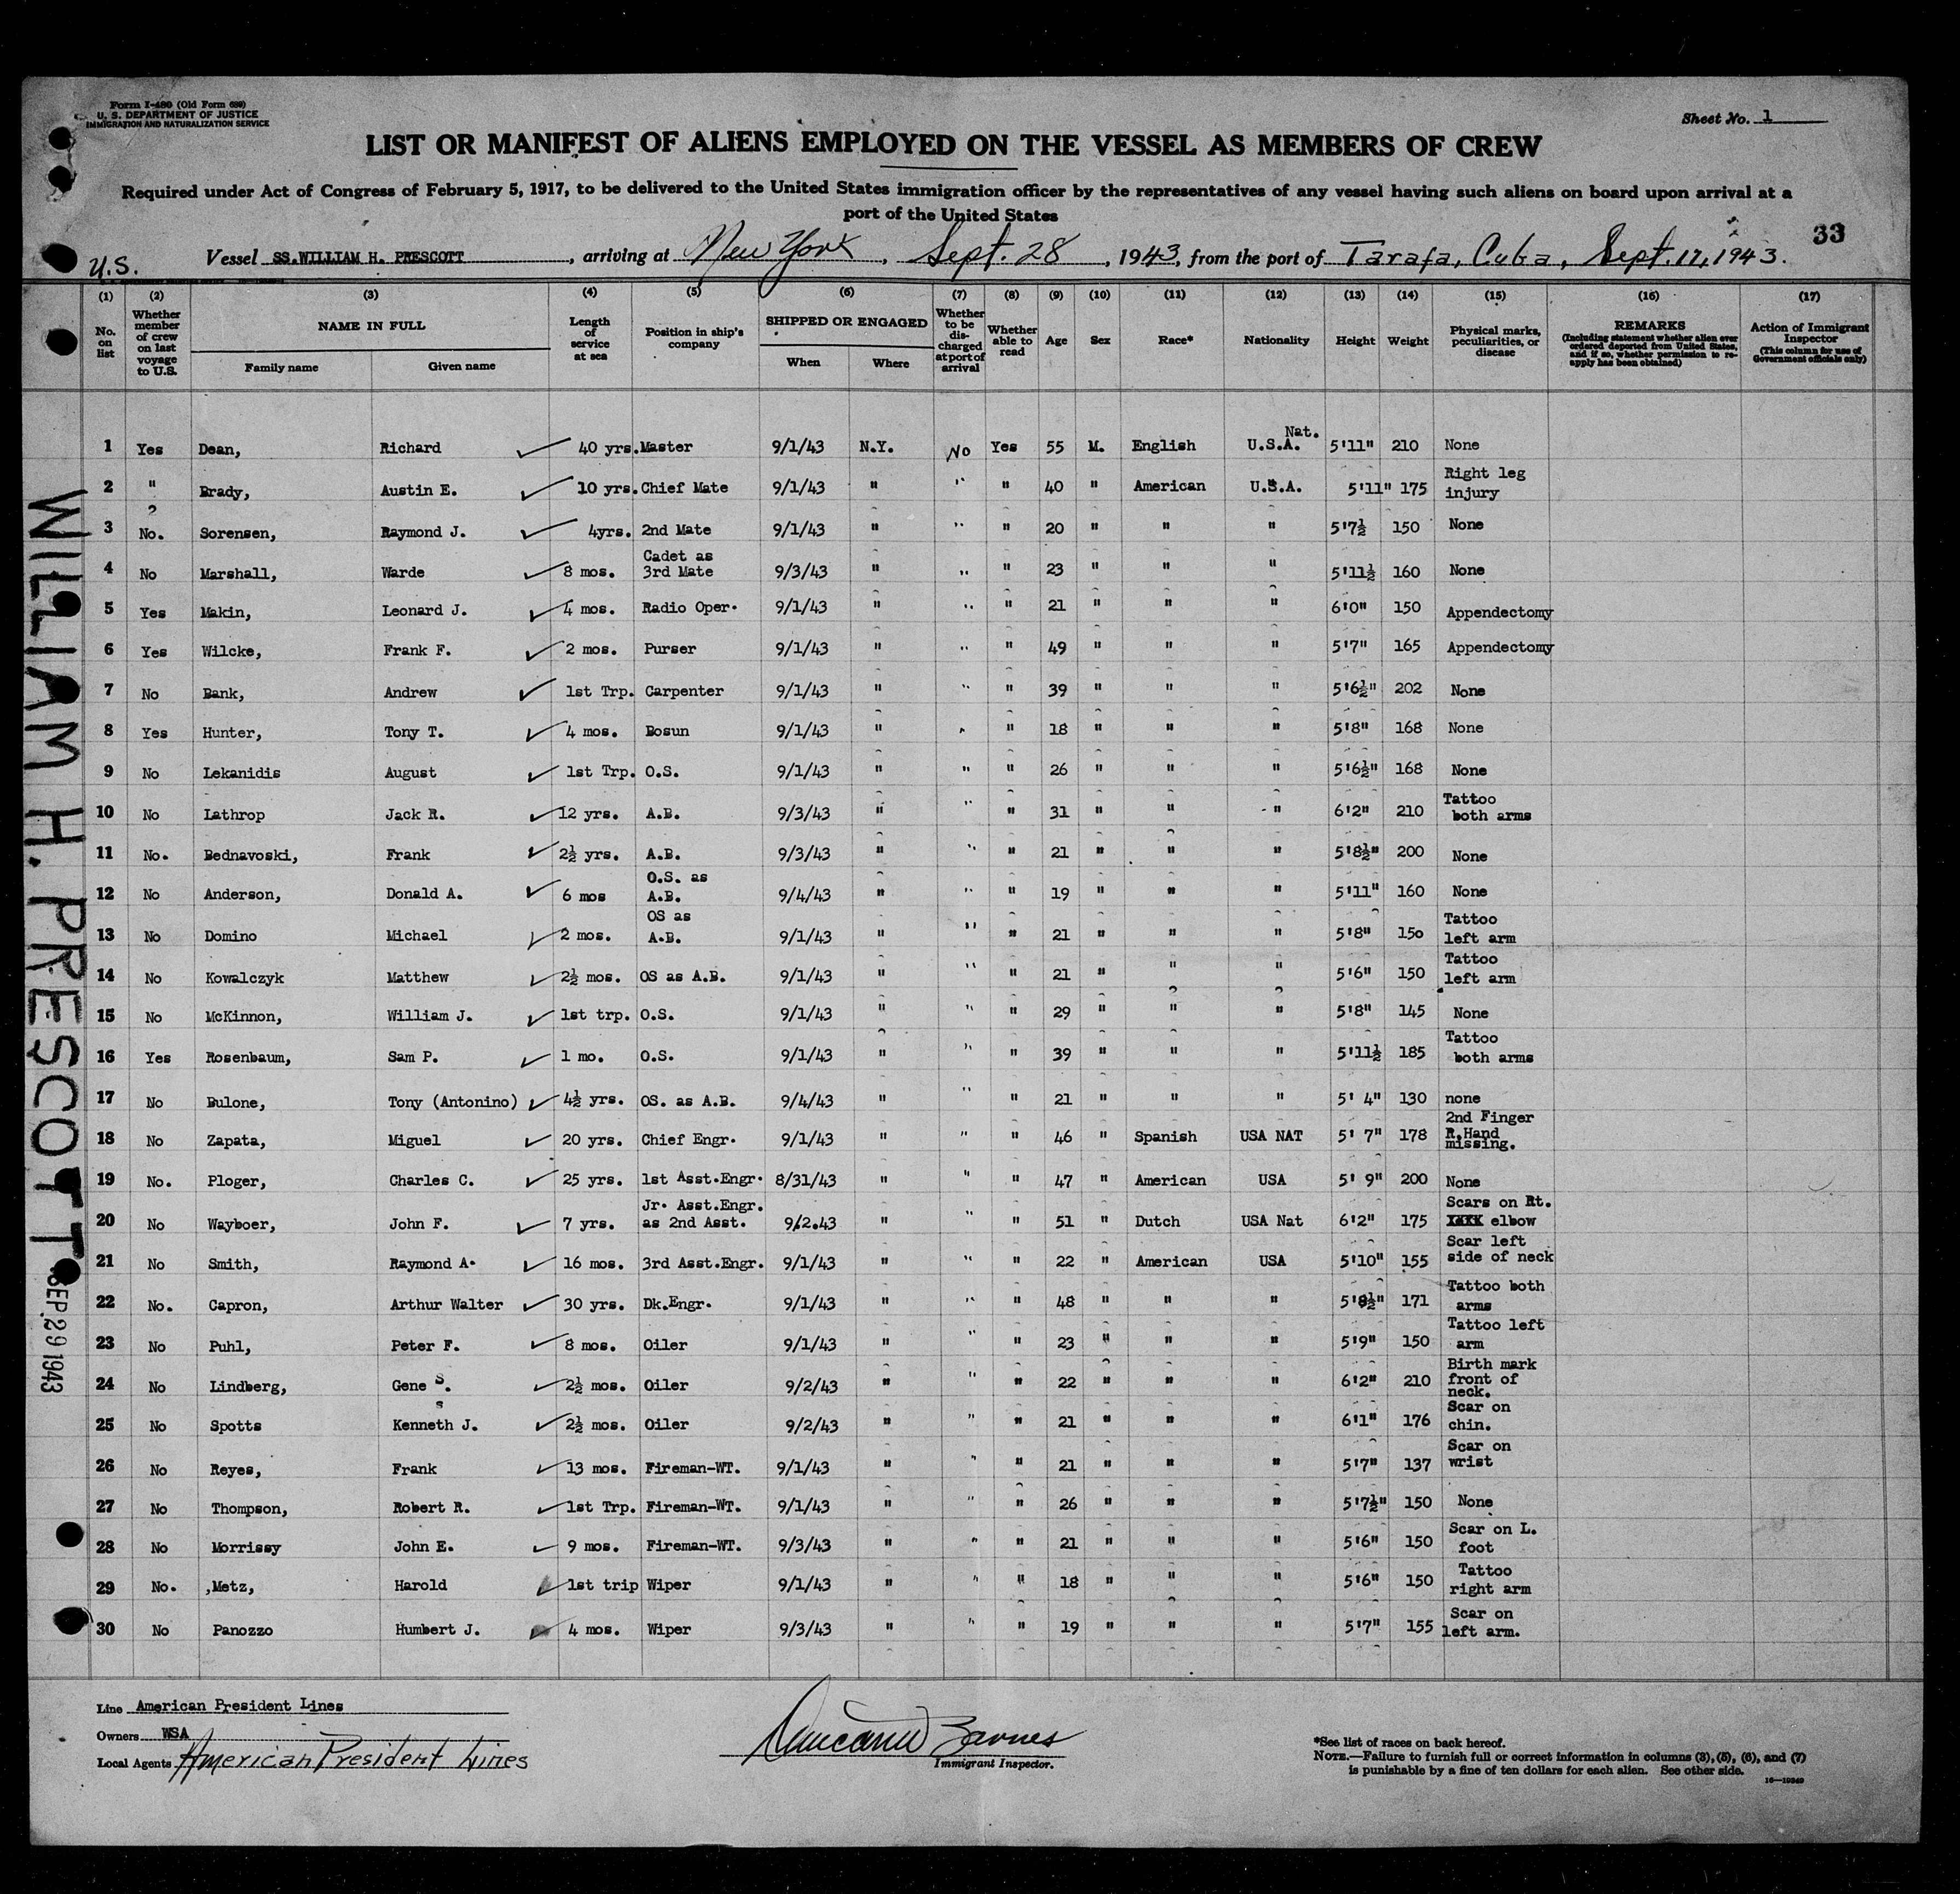 Form I-480 (Old Form 689)
U. S. DEPARTMENT OF JUSTICE
IMMIGRATION AND NATURALIZATION SERVICE
Sheet No. 1
LIST OR MANIFEST OF ALIENS EMPLOYED ON THE VESSEL AS MEMBERS OF CREW
Required under Act of Congress of February 5, 1917, to be delivered to the United States immigration officer by the representatives of any vessel having such aliens on board upon arrival at a
port of the United States
33
U.S. Vessel SS. WILLIAM H. PRESCOTT, arriving at New York, Sept. 28, 1943, from the port of Tarafa, Cuba, Sept. 17, 1943.
(1) (2) (3) (4) (5) (6) (7) (8) (9) (10) (11) (12) (13) (14) (15) (16) (17)
No. on list Whether member of crew on last voyage to U.S. NAME IN FULL Family name Given name Length of service at sea Position in ship's company SHIPPED OR ENGAGED When Where Whether to be discharged at port of arrival Whether able to read Age Sex Race* Nationality Height Weight Physical marks, peculiarities, or disease REMARKS (Including statement whether alien ever ordered deported from United States, and if so, whether permission to reapply has been obtained) Action of Immigrant Inspector (This column for use of Government officials only)
1 Yes Dean, Richard 40 yrs. Master 9/1/43 N.Y. No Yes 55 M. English Nat. U.S.A. 5'11" 210 None
2 " Brady, Austin E. 10 yrs. Chief Mate 9/1/43 " " " 40 " American U.S.A. 5'11" 175 Right leg injury
3 ? No. Sorensen, Raymond J. 4yrs. 2nd Mate 9/1/43 " " " 20 " " " 5'7½ 150 None
4 No Marshall, Warde 8 mos. Cadet as 3rd Mate 9/3/43 " " " 23 " " " 5'11½ 160 None
5 Yes Makin, Leonard J. 4 mos. Radio Oper. 9/1/43 " " " 21 " " " 6'0" 150 Appendectomy
6 Yes Wilcke, Frank F. 2 mos. Purser 9/1/43 " " " 49 " " " 5'7" 165 Appendectomy
7 No Bank, Andrew 1st Trp. Carpenter 9/1/43 " " " 39 " " " 5'6½" 202 None
8 Yes Hunter, Tony T. 4 mos. Bosun 9/1/43 " " " 18 " " " 5'8" 168 None
9 No Lekanidis August 1st Trp. O.S. 9/1/43 " " " 26 " " " 5'6½" 168 None
10 No Lathrop Jack R. 12 yrs. A.B. 9/3/43 " " " 31 " " " 6'2" 210 Tattoo both arms
11 No. Bednavoski, Frank 2½ yrs. A.B. 9/3/43 " " " 21 " " " 5'8½" 200 None
12 No Anderson, Donald A. 6 mos O.S. as A.B. 9/4/43 " " " 19 " " " 5'11" 160 None
13 No Domino Michael 2 mos. OS as A.B. 9/1/43 " " " 21 " " " 5'8" 150 Tattoo left arm
14 No Kowalczyk Matthew 2½ mos. OS as A.B. 9/1/43 " " " 21 " " " 5'6" 150 Tattoo left arm
15 No McKinnon, William J. 1st trp. O.S. 9/1/43 " " " 29 " " " 5'8" 145 None
16 Yes Rosenbaum, Sam P. 1 mo. O.S. 9/1/43 " " " 39 " " " 5'11½ 185 Tattoo both arms
17 No Bulone, Tony (Antonino) 4½ yrs. OS. as A.B. 9/4/43 " " " 21 " " " 5' 4" 130 none
18 No Zapata, Miguel 20 yrs. Chief Engr. 9/1/43 " " " 46 " Spanish USA NAT 5' 7" 178 2nd Finger R.Hand missing.
19 No. Ploger, Charles C. 25 yrs. 1st Asst.Engr. 8/31/43 " " " 47 " American USA 5' 9" 200 None
20 No Wayboer, John F. 7 yrs. Jr. Asst.Engr. as 2nd Asst. 9/2.43 " " " 51 " Dutch USA Nat 6'2" 175 Scars on Rt. elbow
21 No Smith, Raymond A. 16 mos. 3rd Asst.Engr. 9/1/43 " " " 22 " American USA 5'10" 155 Scar left side of neck
22 No. Capron, Arthur Walter 30 yrs. Dk.Engr. 9/1/43 " " " 48 " " " 5'8½" 171 Tattoo both arms
23 No Puhl, Peter F. 8 mos. Oiler 9/1/43 " " " 23 " " " 5'9" 150 Tattoo left arm
24 No Lindberg, Gene S. 2½ mos. Oiler 9/2/43 " " " 22 " " " 6'2" 210 Birth mark front of neck.
25 No Spotts Kenneth J. 2½ mos. Oiler 9/2/43 " " " 21 " " " 6'1" 176 Scar on chin.
26 No Reyes, Frank 13 mos. Fireman-WT. 9/1/43 " " " 21 " " " 5'7" 137 Scar on wrist
27 No Thompson, Robert R. 1st Trp. Fireman-WT. 9/1/43 " " " 26 " " " 5'7½" 150 None
28 No Morrissy John E. 9 mos. Fireman-WT. 9/3/43 " " " 21 " " " 5'6" 150 Scar on L. foot
29 No. ,Metz, Harold 1st trip Wiper 9/1/43 " " " 18 " " " 5'6" 150 Tattoo right arm
30 No Panozzo Humbert J. 4 mos. Wiper 9/3/43 " " " 19 " " " 5'7" 155 Scar on left arm.
WILLIAM H. PRESCOTT
SEP 29 1943
Line American President Lines
Owners WSA
Local Agents American President Lines
Barnes
Immigrant Inspector.
*See list of races on back hereof.
NOTE.—Failure to furnish full or correct information in columns (3), (5), (6), and (7)
is punishable by a fine of ten dollars for each alien. See other side.